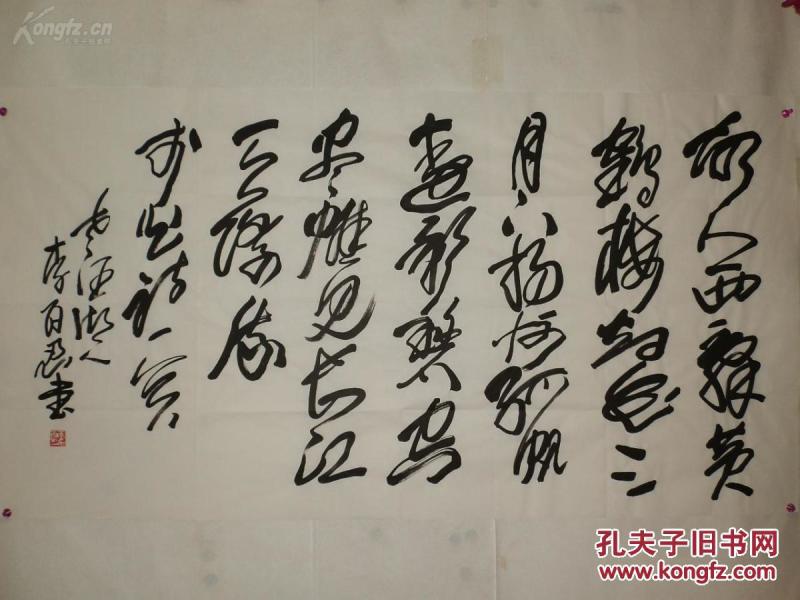 故人西辞黄
鹤楼烟花三
月下扬州孤帆
远影碧空
尽惟见长江
天际流
诗一
湖人
李百忍书
Kongfz.cn
孔夫子旧书网
www.kongfz.com